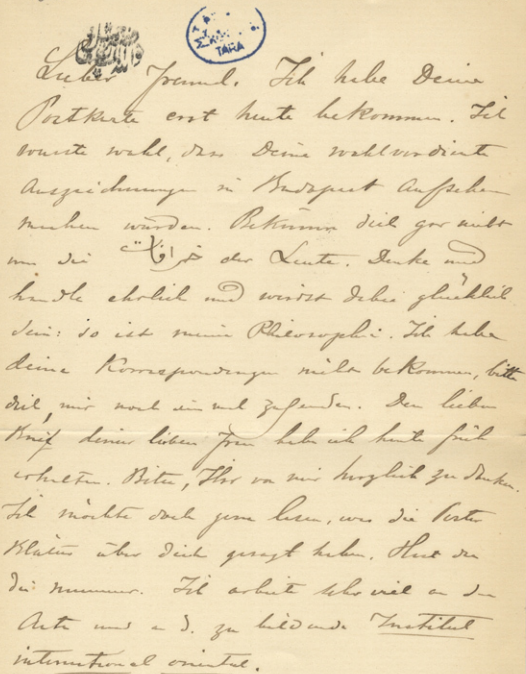 TARA
Lieber Freund. Ich habe Deine
Postkarte erst heute bekommen. Ich
wusste wohl, dass Deine wohlverdiente
Auszeichnungen in Budapest Aufsehen
machen würden. Bekümm dich gar nicht
um die خرافات der Leute. Denke und
handle ehrlich und wirst dabei glücklich
sein: so ist meine Philosophie. Ich habe
deine Korrespondenzen nicht bekommen, bitte
dich, mir noch einmal zusenden. Den lieben
Brief deiner lieben Frau habe ich heute früh
erhalten. Bitte, Ihr von mir herzlich zu danken.
Ich möchte doch gern lesen, was die Pester
Blätter über dich gesagt haben. Hast du
die nummer. Ich arbeite sehr viel an den
Acte und a. d. zu bildende Institut
international oriental.